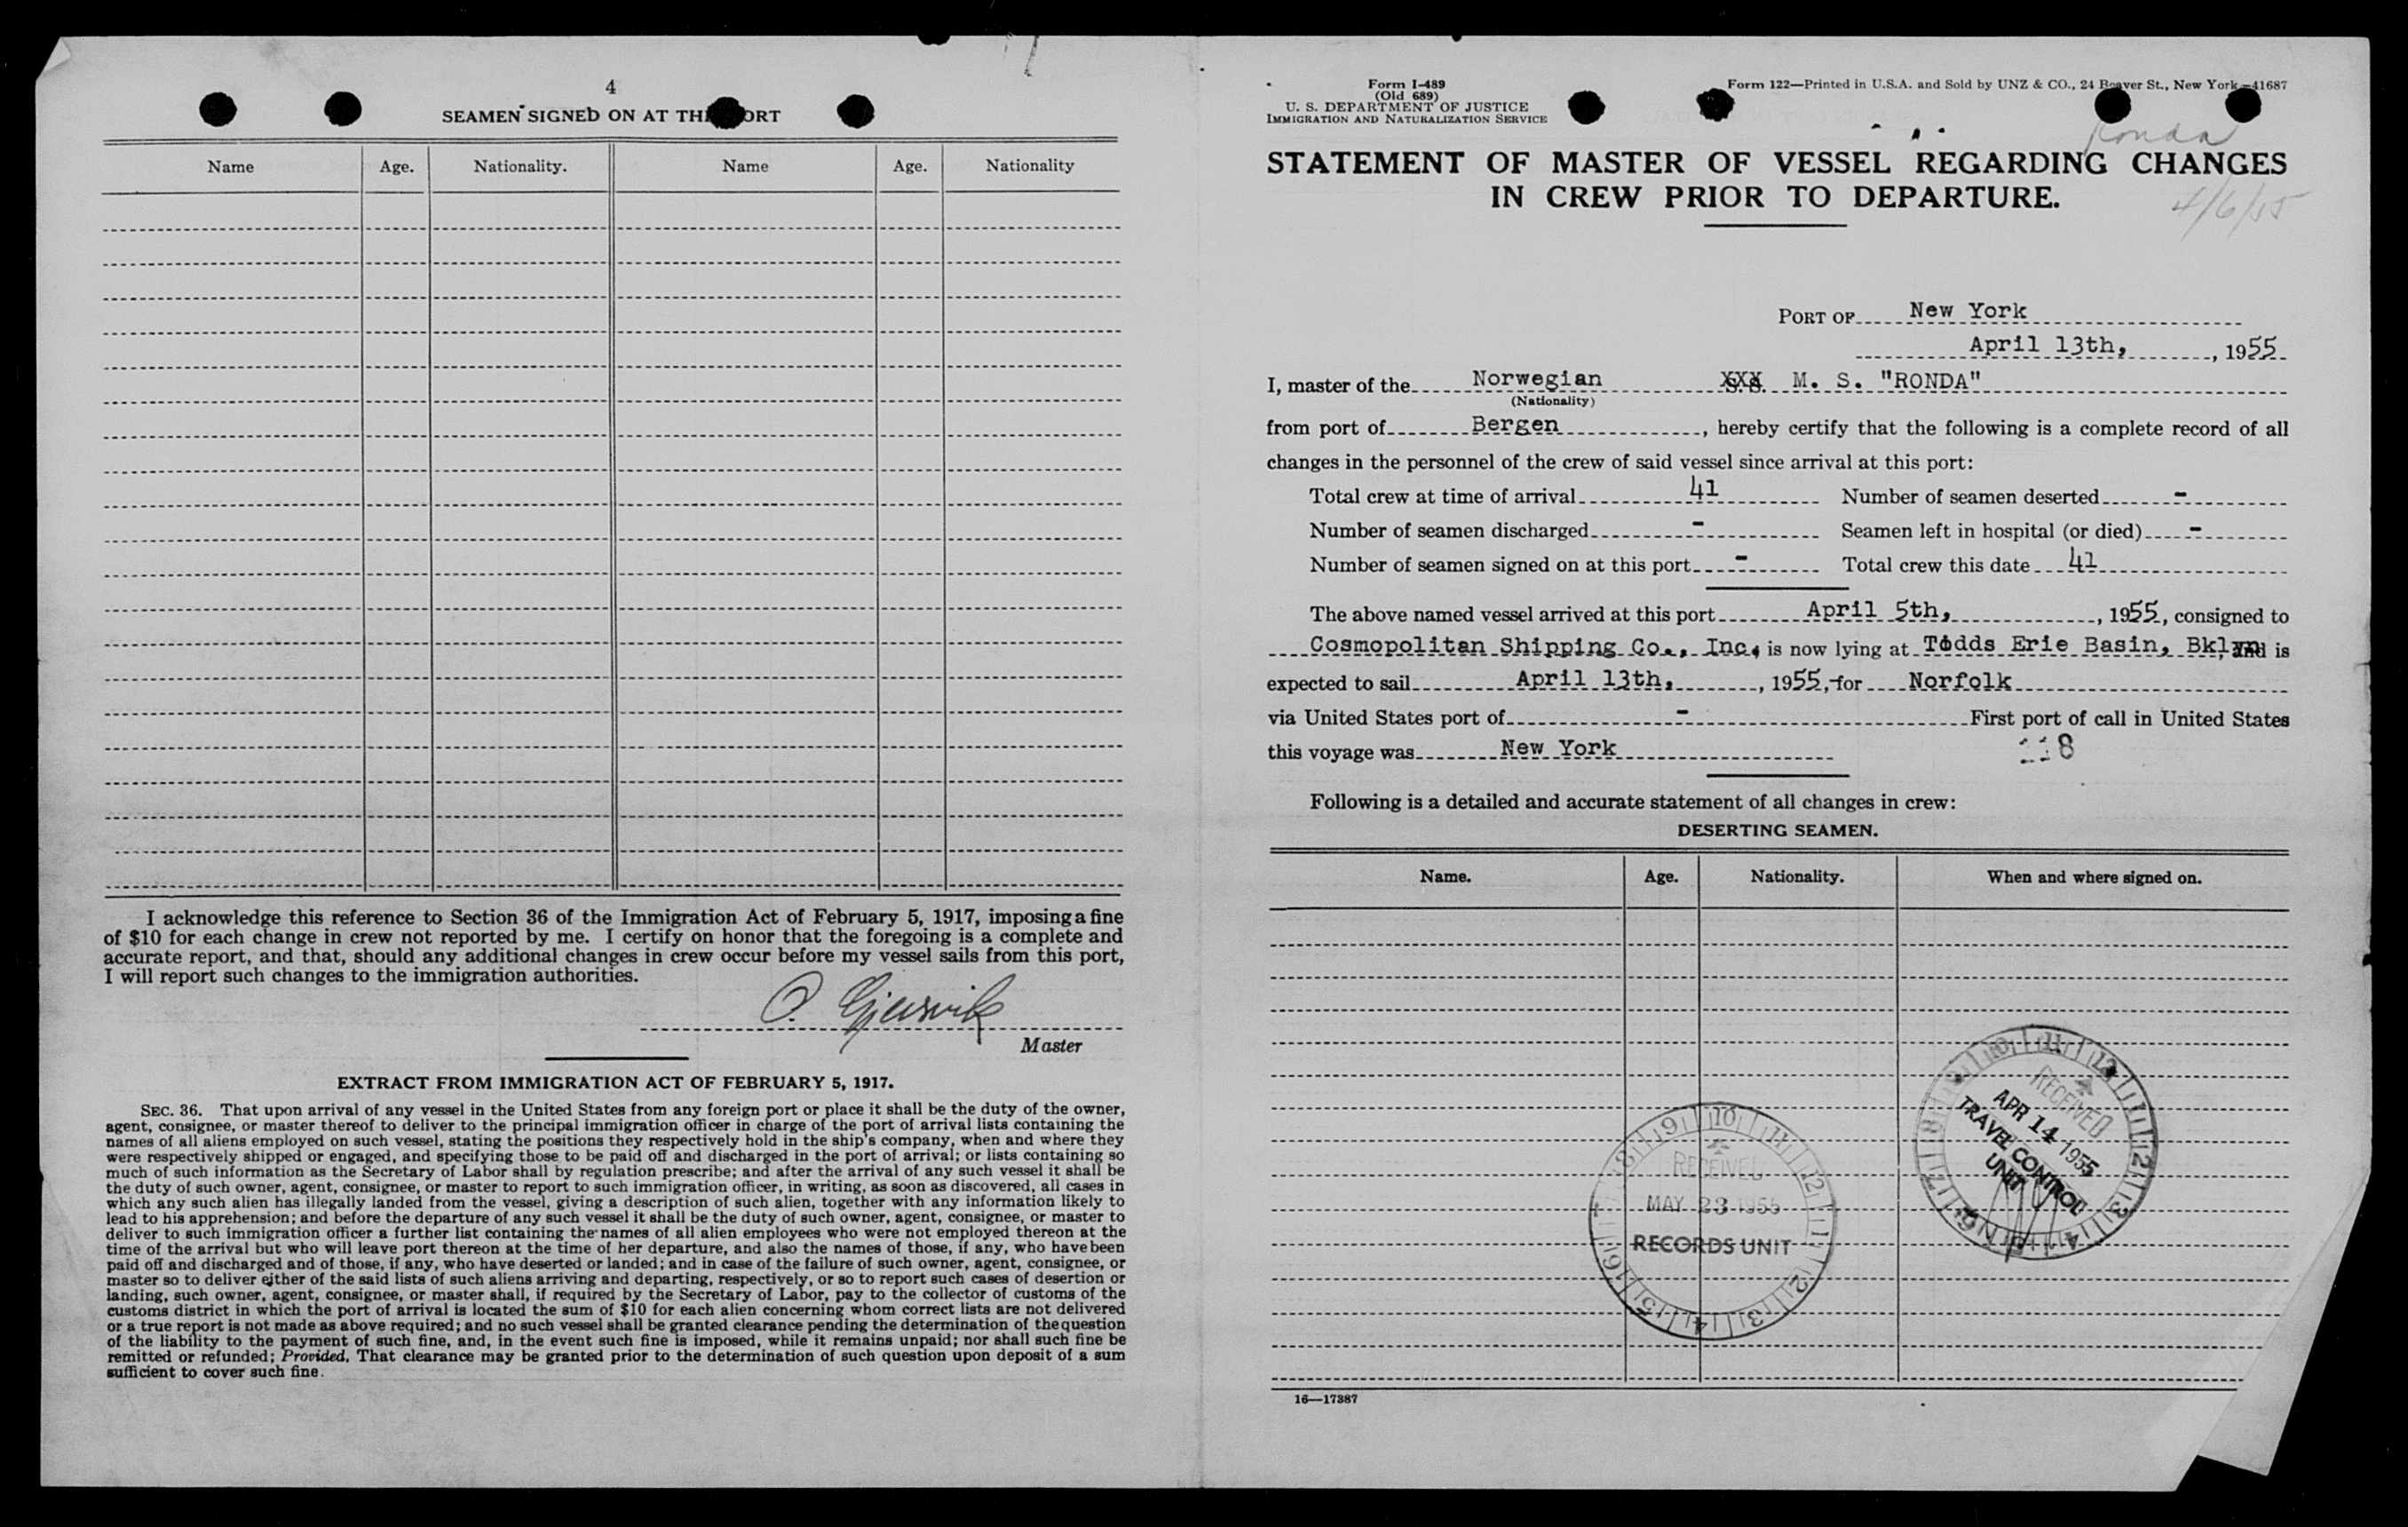 4
SEAMEN SIGNED ON AT THIS PORT
Name Age. Nationality. Name Age. Nationality
I acknowledge this reference to Section 36 of the Immigration Act of February 5, 1917, imposing a fine
of $10 for each change in crew not reported by me. I certify on honor that the foregoing is a complete and
accurate report, and that, should any additional changes in crew occur before my vessel sails from this port,
I will report such changes to the immigration authorities.
O. Gjersvik
Master
EXTRACT FROM IMMIGRATION ACT OF FEBRUARY 5, 1917.
SEC. 36. That upon arrival of any vessel in the United States from any foreign port or place it shall be the duty of the owner,
agent, consignee, or master thereof to deliver to the principal immigration officer in charge of the port of arrival lists containing the
names of all aliens employed on such vessel, stating the positions they respectively hold in the ship's company, when and where they
were respectively shipped or engaged, and specifying those to be paid off and discharged in the port of arrival; or lists containing so
much of such information as the Secretary of Labor shall by regulation prescribe; and after the arrival of any such vessel it shall be
the duty of such owner, agent, consignee, or master to report to such immigration officer, in writing, as soon as discovered, all cases in
which any such alien has illegally landed from the vessel, giving a description of such alien, together with any information likely to
lead to his apprehension; and before the departure of any such vessel it shall be the duty of such owner, agent, consignee, or master to
deliver to such immigration officer a further list containing the names of all alien employees who were not employed thereon at the
time of the arrival but who will leave port thereon at the time of her departure, and also the names of those, if any, who have been
paid off and discharged and of those, if any, who have deserted or landed; and in case of the failure of such owner, agent, consignee, or
master so to deliver either of the said lists of such aliens arriving and departing, respectively, or so to report such cases of desertion or
landing, such owner, agent, consignee, or master shall, if required by the Secretary of Labor, pay to the collector of customs of the
customs district in which the port of arrival is located the sum of $10 for each alien concerning whom correct lists are not delivered
or a true report is not made as above required; and no such vessel shall be granted clearance pending the determination of the question
of the liability to the payment of such fine, and, in the event such fine is imposed, while it remains unpaid; nor shall such fine be
remitted or refunded; Provided, That clearance may be granted prior to the determination of such question upon deposit of a sum
sufficient to cover such fine.
Form I-489
(Old 689)
U. S. DEPARTMENT OF JUSTICE
IMMIGRATION AND NATURALIZATION SERVICE
Form 122—Printed in U.S.A. and Sold by UNZ & CO., 24 Beaver St., New York—41687
Ronda
STATEMENT OF MASTER OF VESSEL REGARDING CHANGES
IN CREW PRIOR TO DEPARTURE.
4/6/55
PORT OF New York
April 13th, , 1955
I, master of the Norwegian XXX M. S. "RONDA"
(Nationality)
from port of Bergen , hereby certify that the following is a complete record of all
changes in the personnel of the crew of said vessel since arrival at this port:
Total crew at time of arrival 41 Number of seamen deserted -
Number of seamen discharged - Seamen left in hospital (or died) -
Number of seamen signed on at this port - Total crew this date 41
The above named vessel arrived at this port April 5th, , 1955, consigned to
Cosmopolitan Shipping Co., Inc. is now lying at Todds Erie Basin, Bklyn and is
expected to sail April 13th, , 1955, for Norfolk
via United States port of - First port of call in United States
this voyage was New York
118
Following is a detailed and accurate statement of all changes in crew:
DESERTING SEAMEN.
Name. Age. Nationality. When and where signed on.
RECEIVED
APR 14 1955
TRAVEL CONTROL
UNIT
RECEIVED
MAY 23 1955
RECORDS UNIT
16—17387